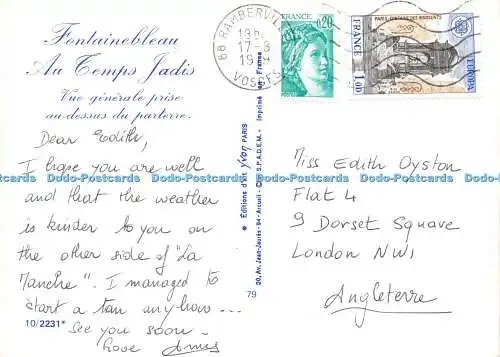 Fontainebleau
Au Temps Jadis
Vue générale prise
au-dessus du parterre.
Dear Edith,
I hope you are well
and that the weather
is kinder to you on
the other side of "La
Manche". I managed to
start a tan anyhow...
See you soon.
Love
10/2231*
79
* Editions d'art yvon PARIS
30, Av. Jean-Jaurès - 94 - Arcueil - C S.P.A.D.E.M. - Imprimé en France
88 RAMBERVILLERS
17-8
VOSGES
FRANCE
0,20
PARIS, FONTAINE DES INNOCENTS
FRANCE
1,00
EUROPA
Miss Edith Oyston
Flat 4
9 Dorset Square
London NW1
Angleterre
Dodo-Postcards Dodo-Postcards Dodo-Postcards Dodo-Postcards Dodo-Postcards